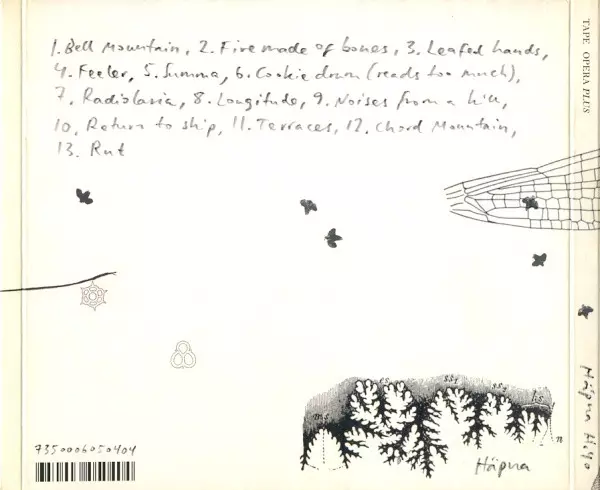 1. Bell Mountain, 2. Fire made of bones, 3. Leafed hands,
4. Feeler, 5. Summa, 6. Cookie drum (reads too much),
7. Radiolaria, 8. Longitude, 9. Noises from a hill,
10. Return to ship, 11. Terraces, 12. Chord Mountain,
13. Rut
TAPE OPERA PLUS
Häpna H.40
ms
ss1
ss2
hs
n
Häpna
7350006050404